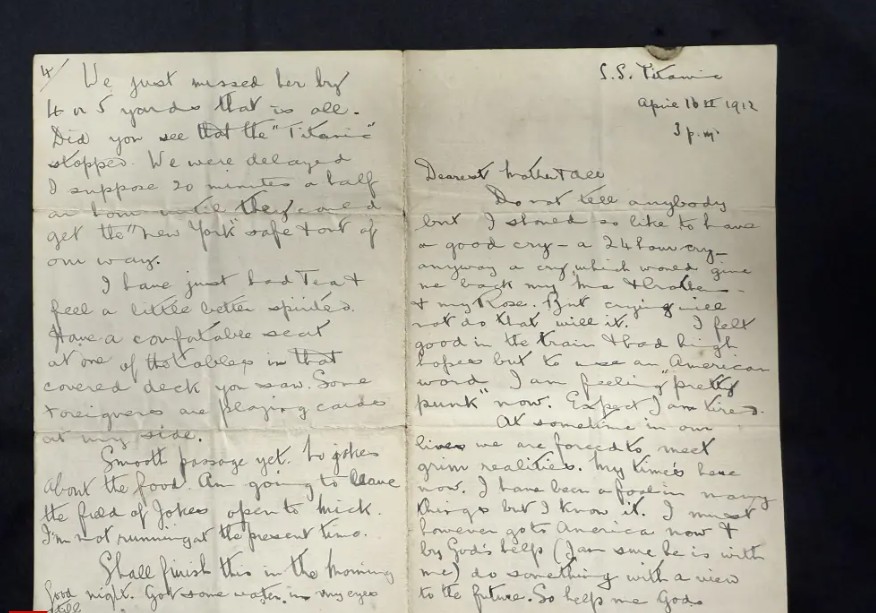 4/ We just missed her by
4 or 5 yards that is all.
Did you see that the "Titanic"
stopped. We were delayed
I suppose 20 minutes a half
an hour until they could
get the "New York" safe & out of
our way.
I have just had Tea &
feel a little better spirited.
Have a comfortable seat
at one of the tables in that
covered deck you saw. Some
Foreigners are playing cards
at my side.
Smooth passage yet. No jokes
about the food. Am going to leave
the field of Jokes open to Mick.
I'm not running at the present time.
Shall finish this in the Morning
Good night. Got some water in my eyes
still
S.S. Titanic
April 10th 1912
3 p.m.
Dearest Mother & all
Do not tell anybody
but I should so like to have
a good cry - a 24 hour cry -
anyway a cry which would give
me back my Ma &
& my Rose. But crying will
not do that will it. I felt
good in the train & had high
hopes but to use an American
word I am feeling "pretty
punk" now. Expect I am tired.
At sometime in our
lives we are forced to meet
grim realities. My time's here
now. I have been a fool in many
things but I know it. I must
however go to America now &
by God's help (I am sure he is with
me) do something with a view
to the future. So help me God.